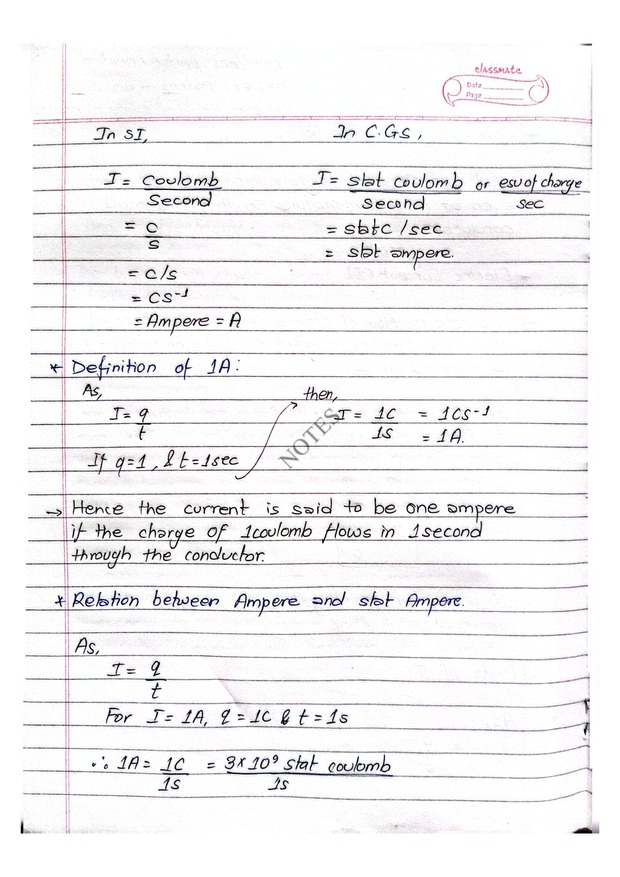 classmate
Date
Page
In SI,
In C.G.S,
I = Coulomb / Second
I = stat coulomb / second or esu of charge / sec
= C / S
= statC / sec
= C/s
= stat ampere.
= CS⁻¹
= Ampere = A
* Definition of 1A:
As,
then,
I = q / t
I = 1C / 1s = 1CS⁻¹
= 1A.
If q = 1, & t = 1sec
NOTES
→ Hence the current is said to be one ampere
if the charge of 1coulomb flows in 1second
through the conductor.
* Relation between Ampere and stat Ampere.
As,
I = q / t
For I = 1A, q = 1C & t = 1s
∴ 1A = 1C / 1s = 3 × 10⁹ stat coulomb / 1s